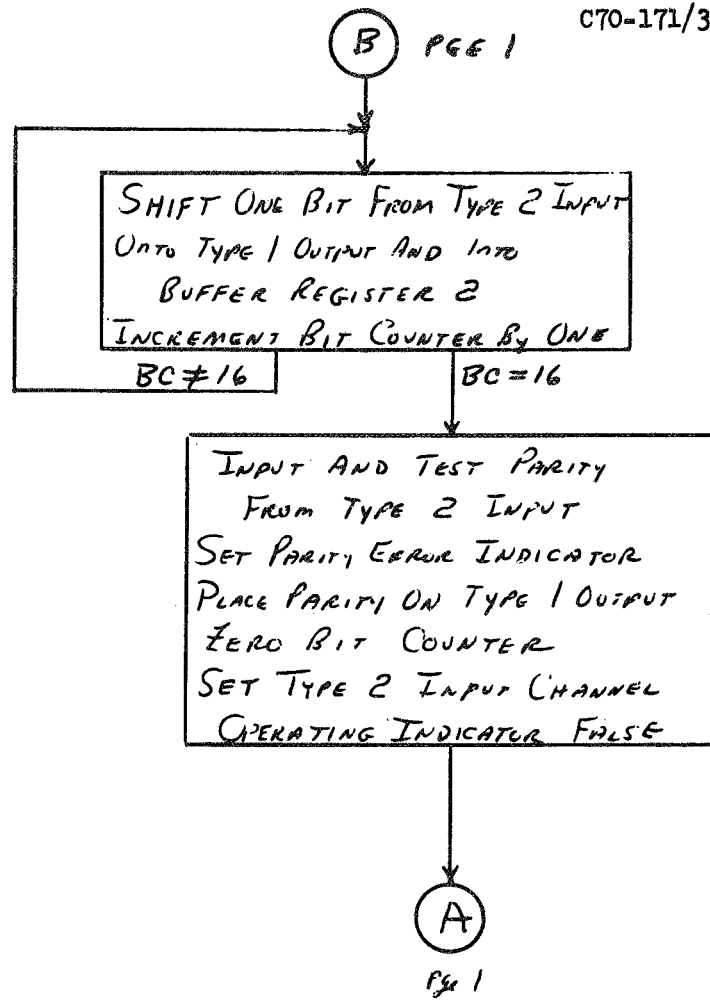 C70-171/3
B PGE 1
SHIFT ONE BIT FROM TYPE 2 INPUT
ONTO TYPE 1 OUTPUT AND INTO
BUFFER REGISTER 2
INCREMENT BIT COUNTER BY ONE
BC ≠ 16
BC = 16
INPUT AND TEST PARITY
FROM TYPE 2 INPUT
SET PARITY ERROR INDICATOR
PLACE PARITY ON TYPE 1 OUTPUT
ZERO BIT COUNTER
SET TYPE 2 INPUT CHANNEL
OPERATING INDICATOR FALSE
A
Pge 1